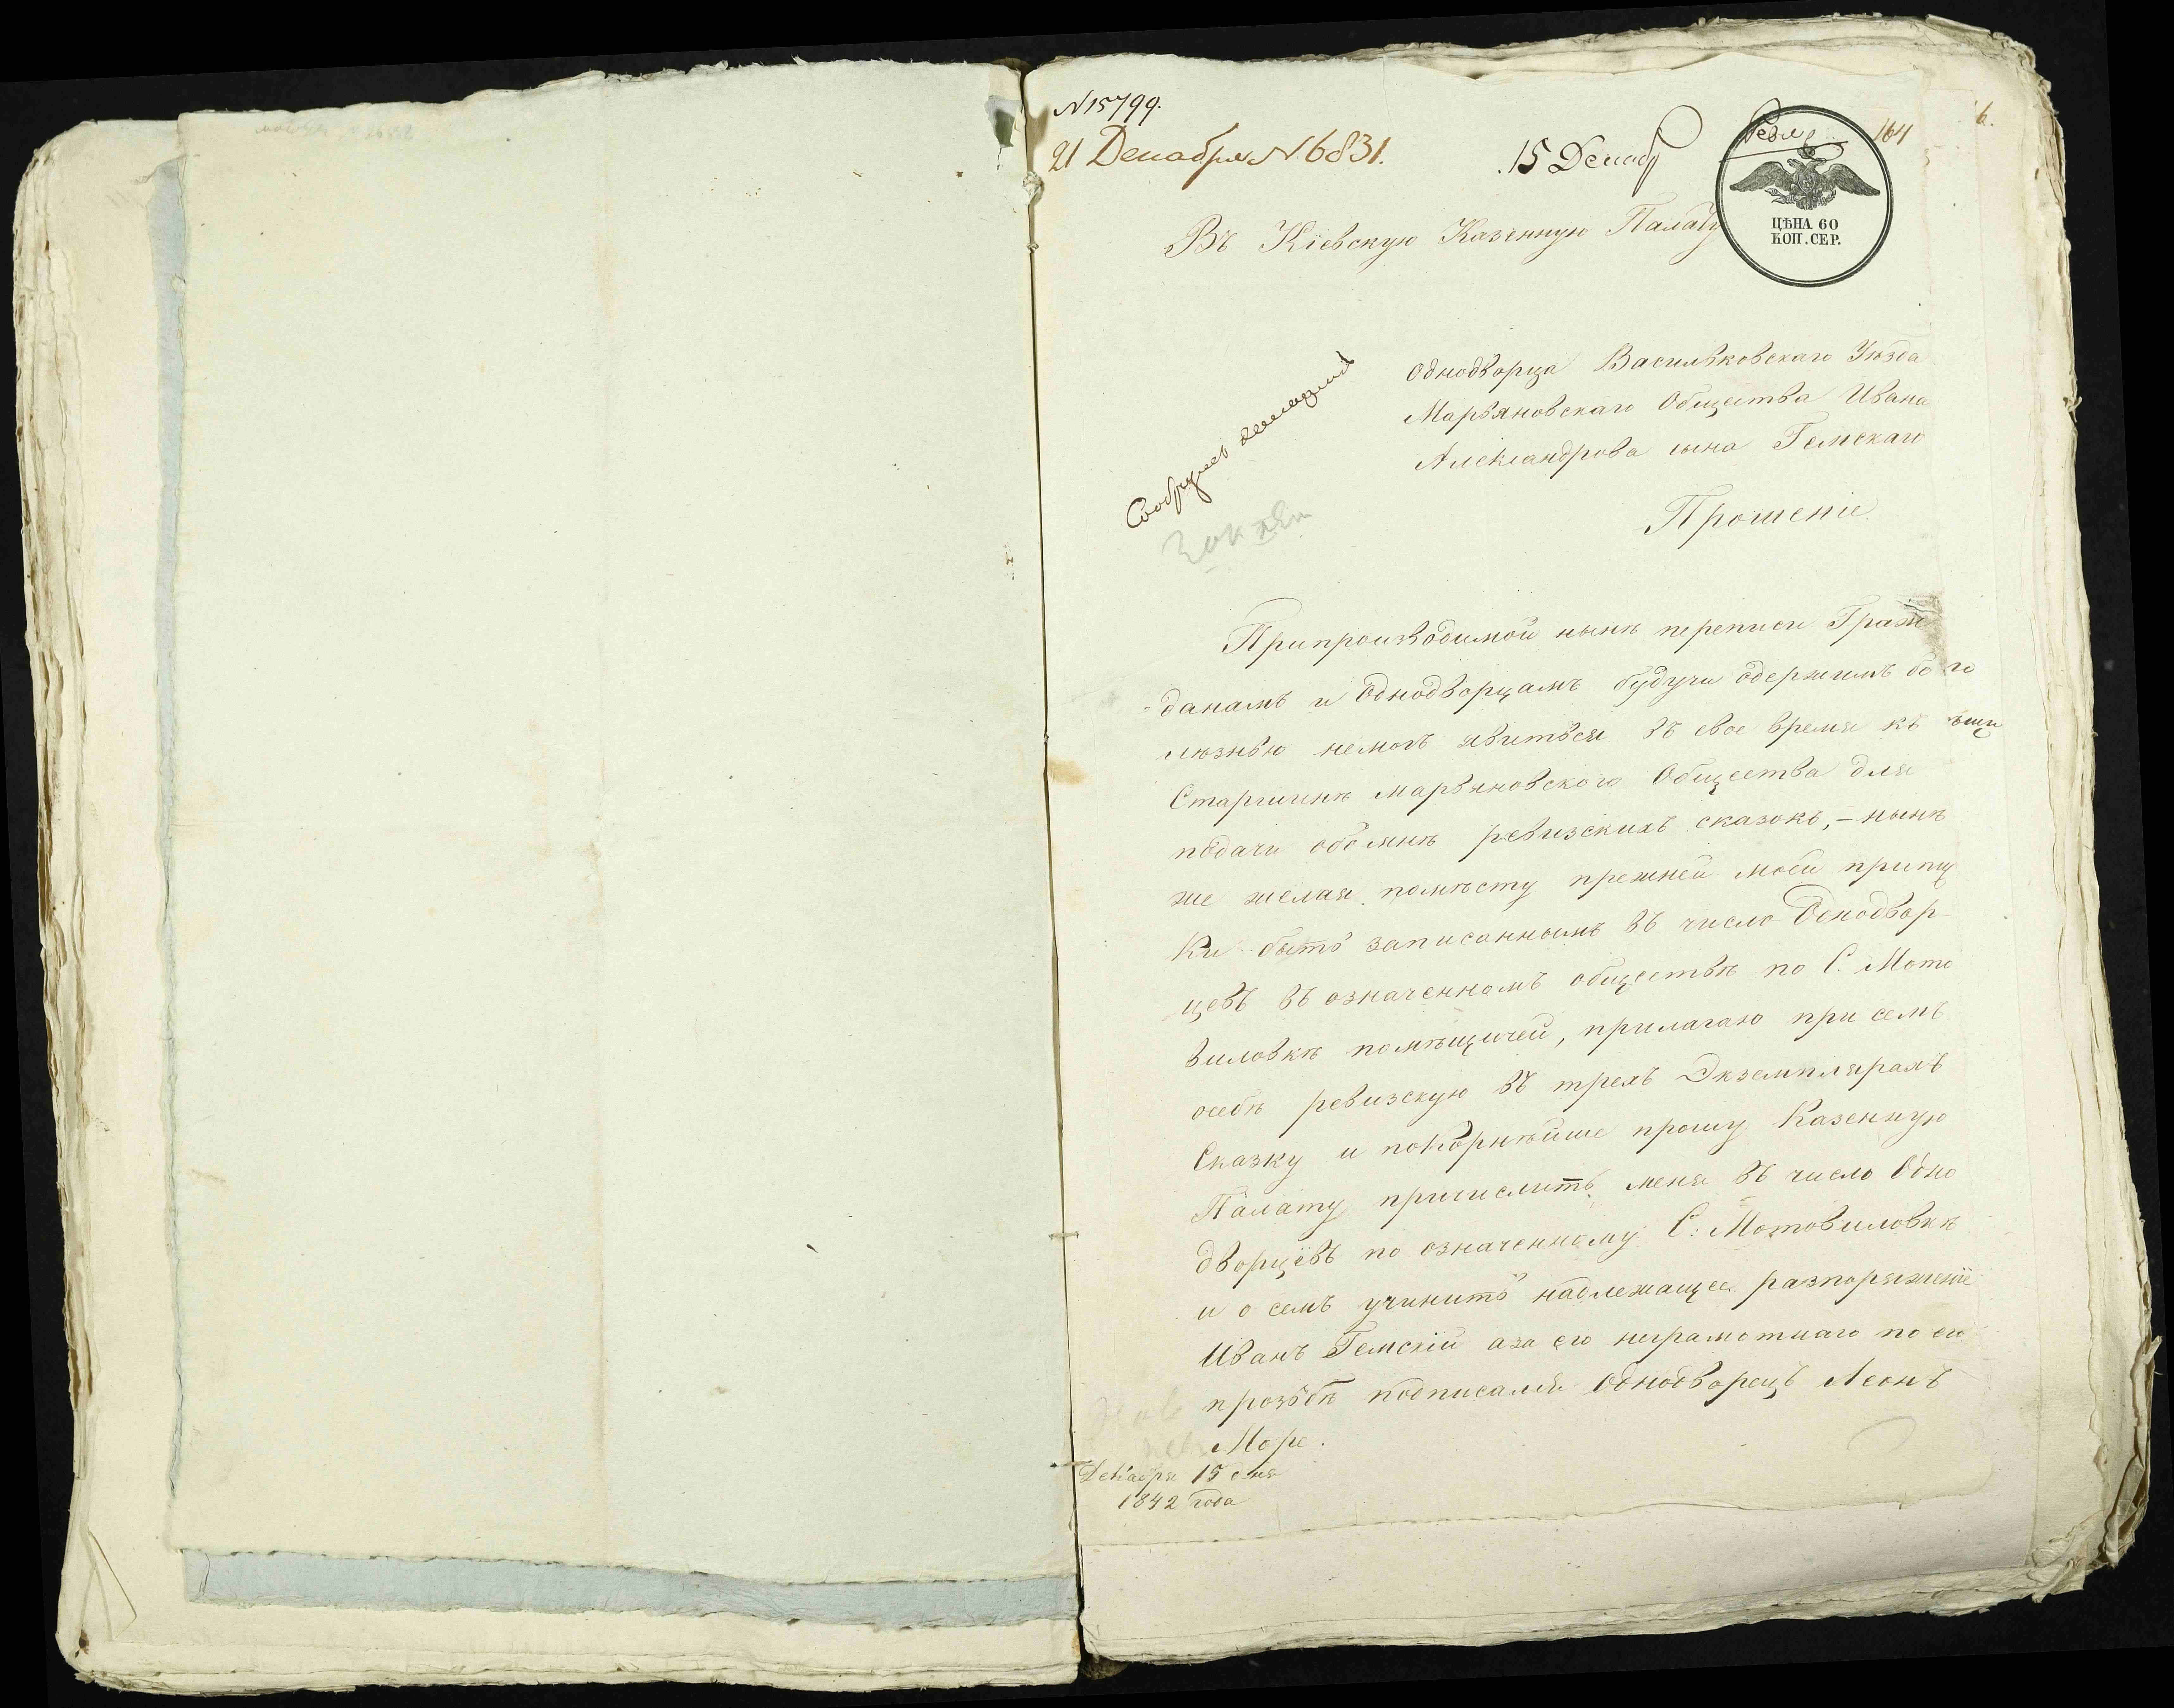 N 15799.
21 Декабря N 6831.
15 Декаб
164
6.
ЦѢНА 60
КОП. СЕР.
Въ Кіевскую Казенную Палату
Однодворца Васильковскаго Уѣзда
Марьяновскаго Общества Ивана
Александрова сына Гемскаго
Прошеніе
При производимой нынѣ переписи Граж
данамъ и Однодворцамъ будучи одержимъ бо
лѣзнью немогъ явиться въ свое время къ
Старшинѣ Марьяновского Общества для
подачи обомнѣ ревизскихъ сказокъ, – нынѣ
же желая помѣсту прежней моей припи
ки быть записаннымъ въ число Однодвор
цевъ въ означенномъ обществѣ по С. Мото
виловкѣ помѣщичей, прилагаю при семъ
осебѣ ревизскую въ трехъ Экземплярахъ
Сказку и покорнѣйше прошу Казенную
Палату причислить меня въ число Одно
дворцевъ по означенному С: Мотовиловкѣ
и о семъ учинить надлежащее разпоряженіе
Иванъ Гемскій аза его неграмотнаго по его
прозьбѣ подписался Однодворецъ Леонъ
Море.
Декабря 15 дня
1842 года